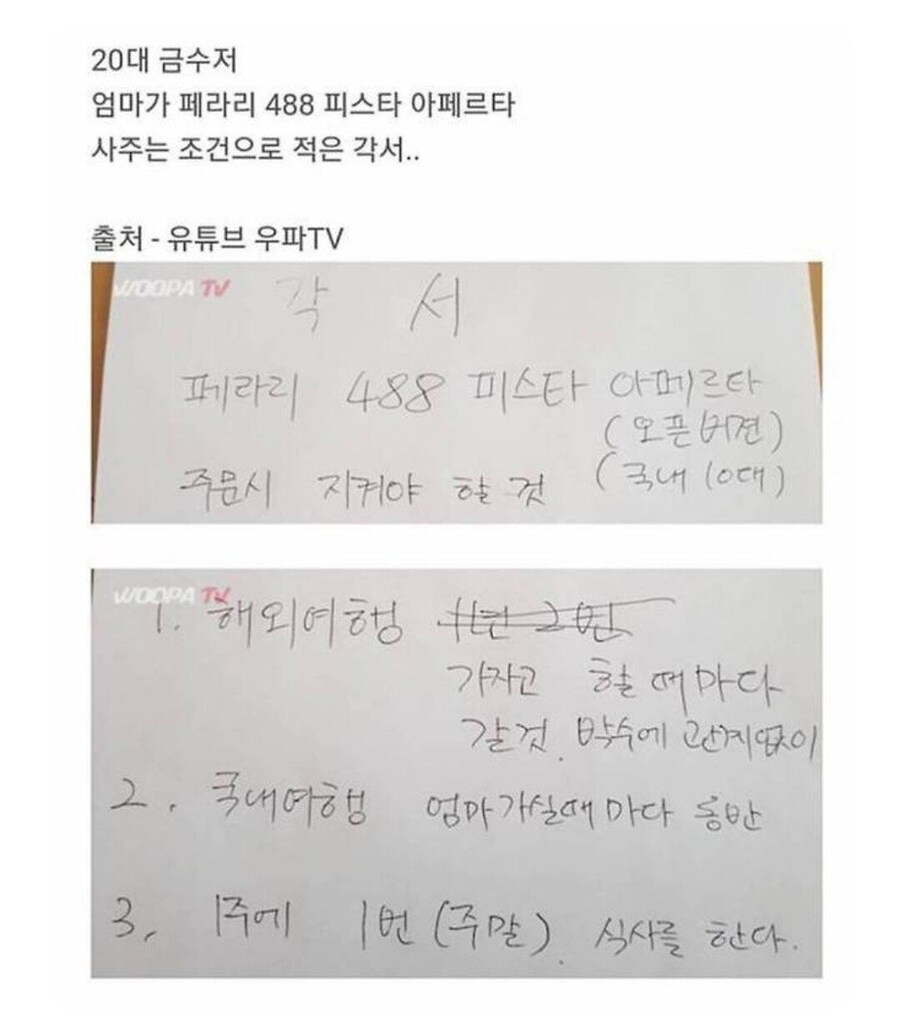 20대 금수저
엄마가 페라리 488 피스타 아페르타
사주는 조건으로 적은 각서..
출처 - 유튜브 우파TV
WOOPA TV
각 서
페라리 488 피스타 아페르타
(오픈버젼)
주문시 지켜야 할 것 (국내 10대)
WOOPA TV
1. 해외여행 1년 2번
가자고 할때마다
갈것. 박수에 관계없이
2. 국내여행 엄마가실때 마다 동반
3. 1주에 1번 (주말). 식사를 한다.